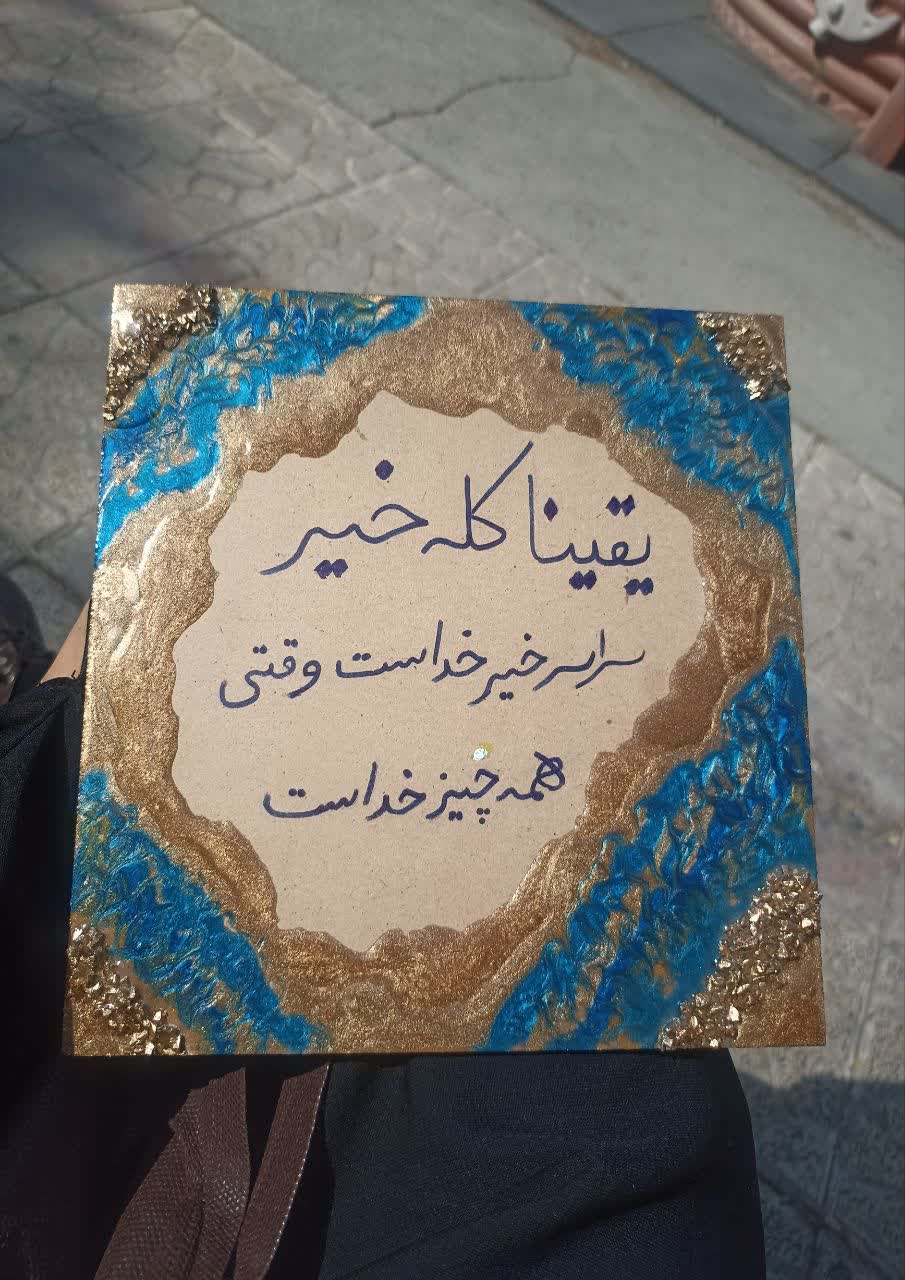 یقینا کله خیر
سراسر خیر خداست وقتی
همه چیز خداست